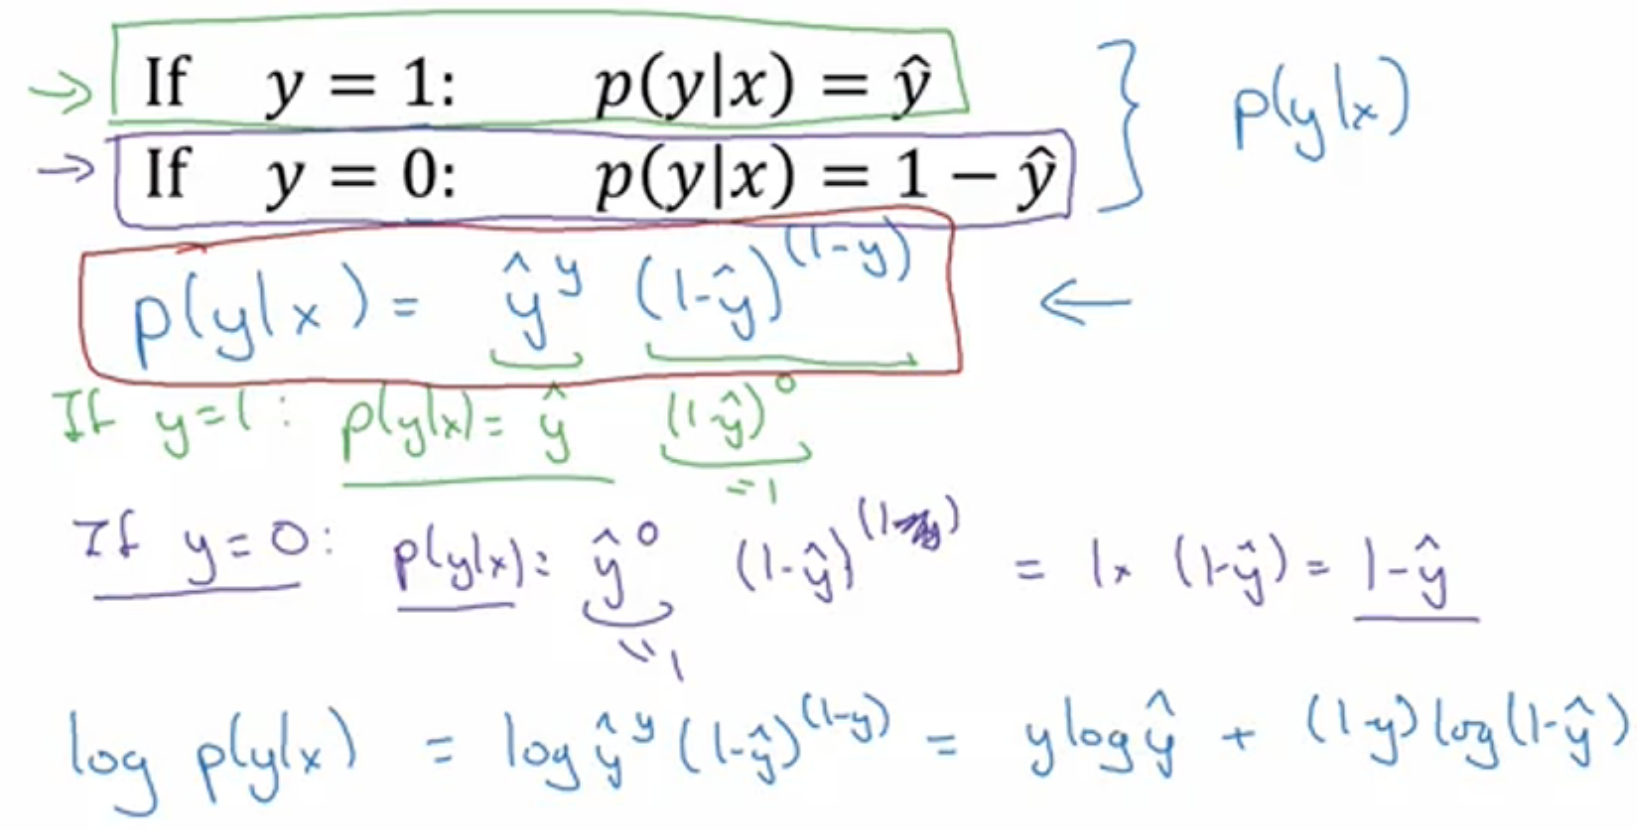 → If y = 1: p(y|x) = ŷ
→ If y = 0: p(y|x) = 1 − ŷ } p(y|x)
p(y|x) = ŷ^y (1-ŷ)^(1-y) ←
If y=1: p(y|x) = ŷ (1-ŷ)^0
=1
If y=0: p(y|x) = ŷ^0 (1-ŷ)^(1-y) = 1 × (1-ŷ) = 1-ŷ
=1
log p(y|x) = log ŷ^y (1-ŷ)^(1-y) = y log ŷ + (1-y) log(1-ŷ)